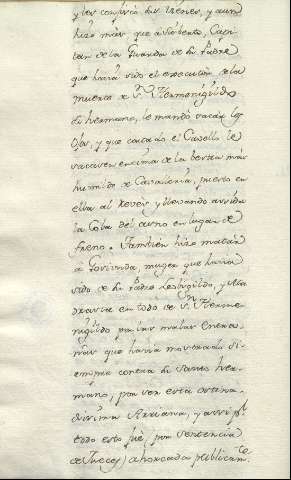 y les confisco sus vienes, y aun
hizo mas, que a Sisberto, Capi-
tan de la Guarda de su Padre
que havia sido el executor de la
muerte de Sn Hermenigildo
su hermano, le mandó sacar los
Ojos, y que cortado el Cavello le
sacasen encima de la bestia mas
humilde de Cavalleria, puesto en
ella al reves y llevando asida
la Cola del asno en lugar de
freno. Tambien hizo matar
a Gosvinda, muger que havia
sido de su Padre Leobigildo, y Ma
drastra en todo de Sn Herme-
nigildo por las malas entra-
ñas que havia mostrado si-
empre contra su Santo Her-
mano, por ser esta
Arriana, y assi pr
todo esto fue, por sentencia
de Jueces ahorcada publicamte